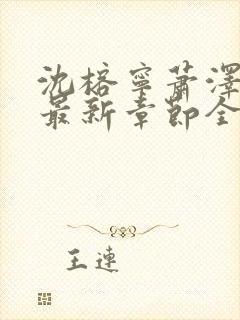 沈榕寧蕭澤
最新章節全
王連